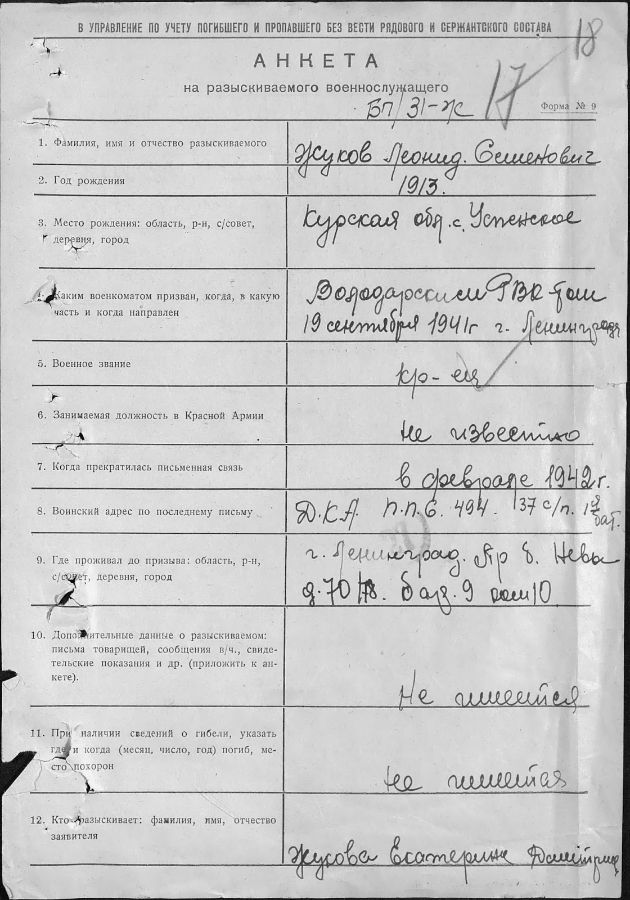 В УПРАВЛЕНИЕ ПО УЧЕТУ ПОГИБШЕГО И ПРОПАВШЕГО БЕЗ ВЕСТИ РЯДОВОГО И СЕРЖАНТСКОГО СОСТАВА
18
АНКЕТА
на разыскиваемого военнослужащего
17
БП/31-ж/с
Форма № 9
1. Фамилия, имя и отчество разыскиваемого
Жуков Леонид. Семенович
2. Год рождения
1913.
3. Место рождения: область, р-н, с/совет,
деревня, город
Курская обл. с. Успенское
4. Каким военкоматом призван, когда, в какую
часть и когда направлен
Володарским РВК
19 сентября 1941г г. Ленинград
5. Военное звание
кр-ец
6. Занимаемая должность в Красной Армии
не известно
7. Когда прекратилась письменная связь
в феврале 1942г.
8. Воинский адрес по последнему письму
Д.К.А. П.П.С. 494. 37 с/п. 1й
бат.
9. Где проживал до призыва: область, р-н,
с/совет, деревня, город
г. Ленинград. Пр б. Невы
д. 70 9 ком 10.
10. Дополнительные данные о разыскиваемом:
письма товарищей, сообщения в/ч., свиде-
тельские показания и др. (приложить к ан-
кете).
Не имеется
11. При наличии сведений о гибели, указать
где и когда (месяц, число, год) погиб, ме-
сто похорон
Не имеется
12. Кто разыскивает: фамилия, имя, отчество
заявителя
Жукова Екатерина Дмитриев